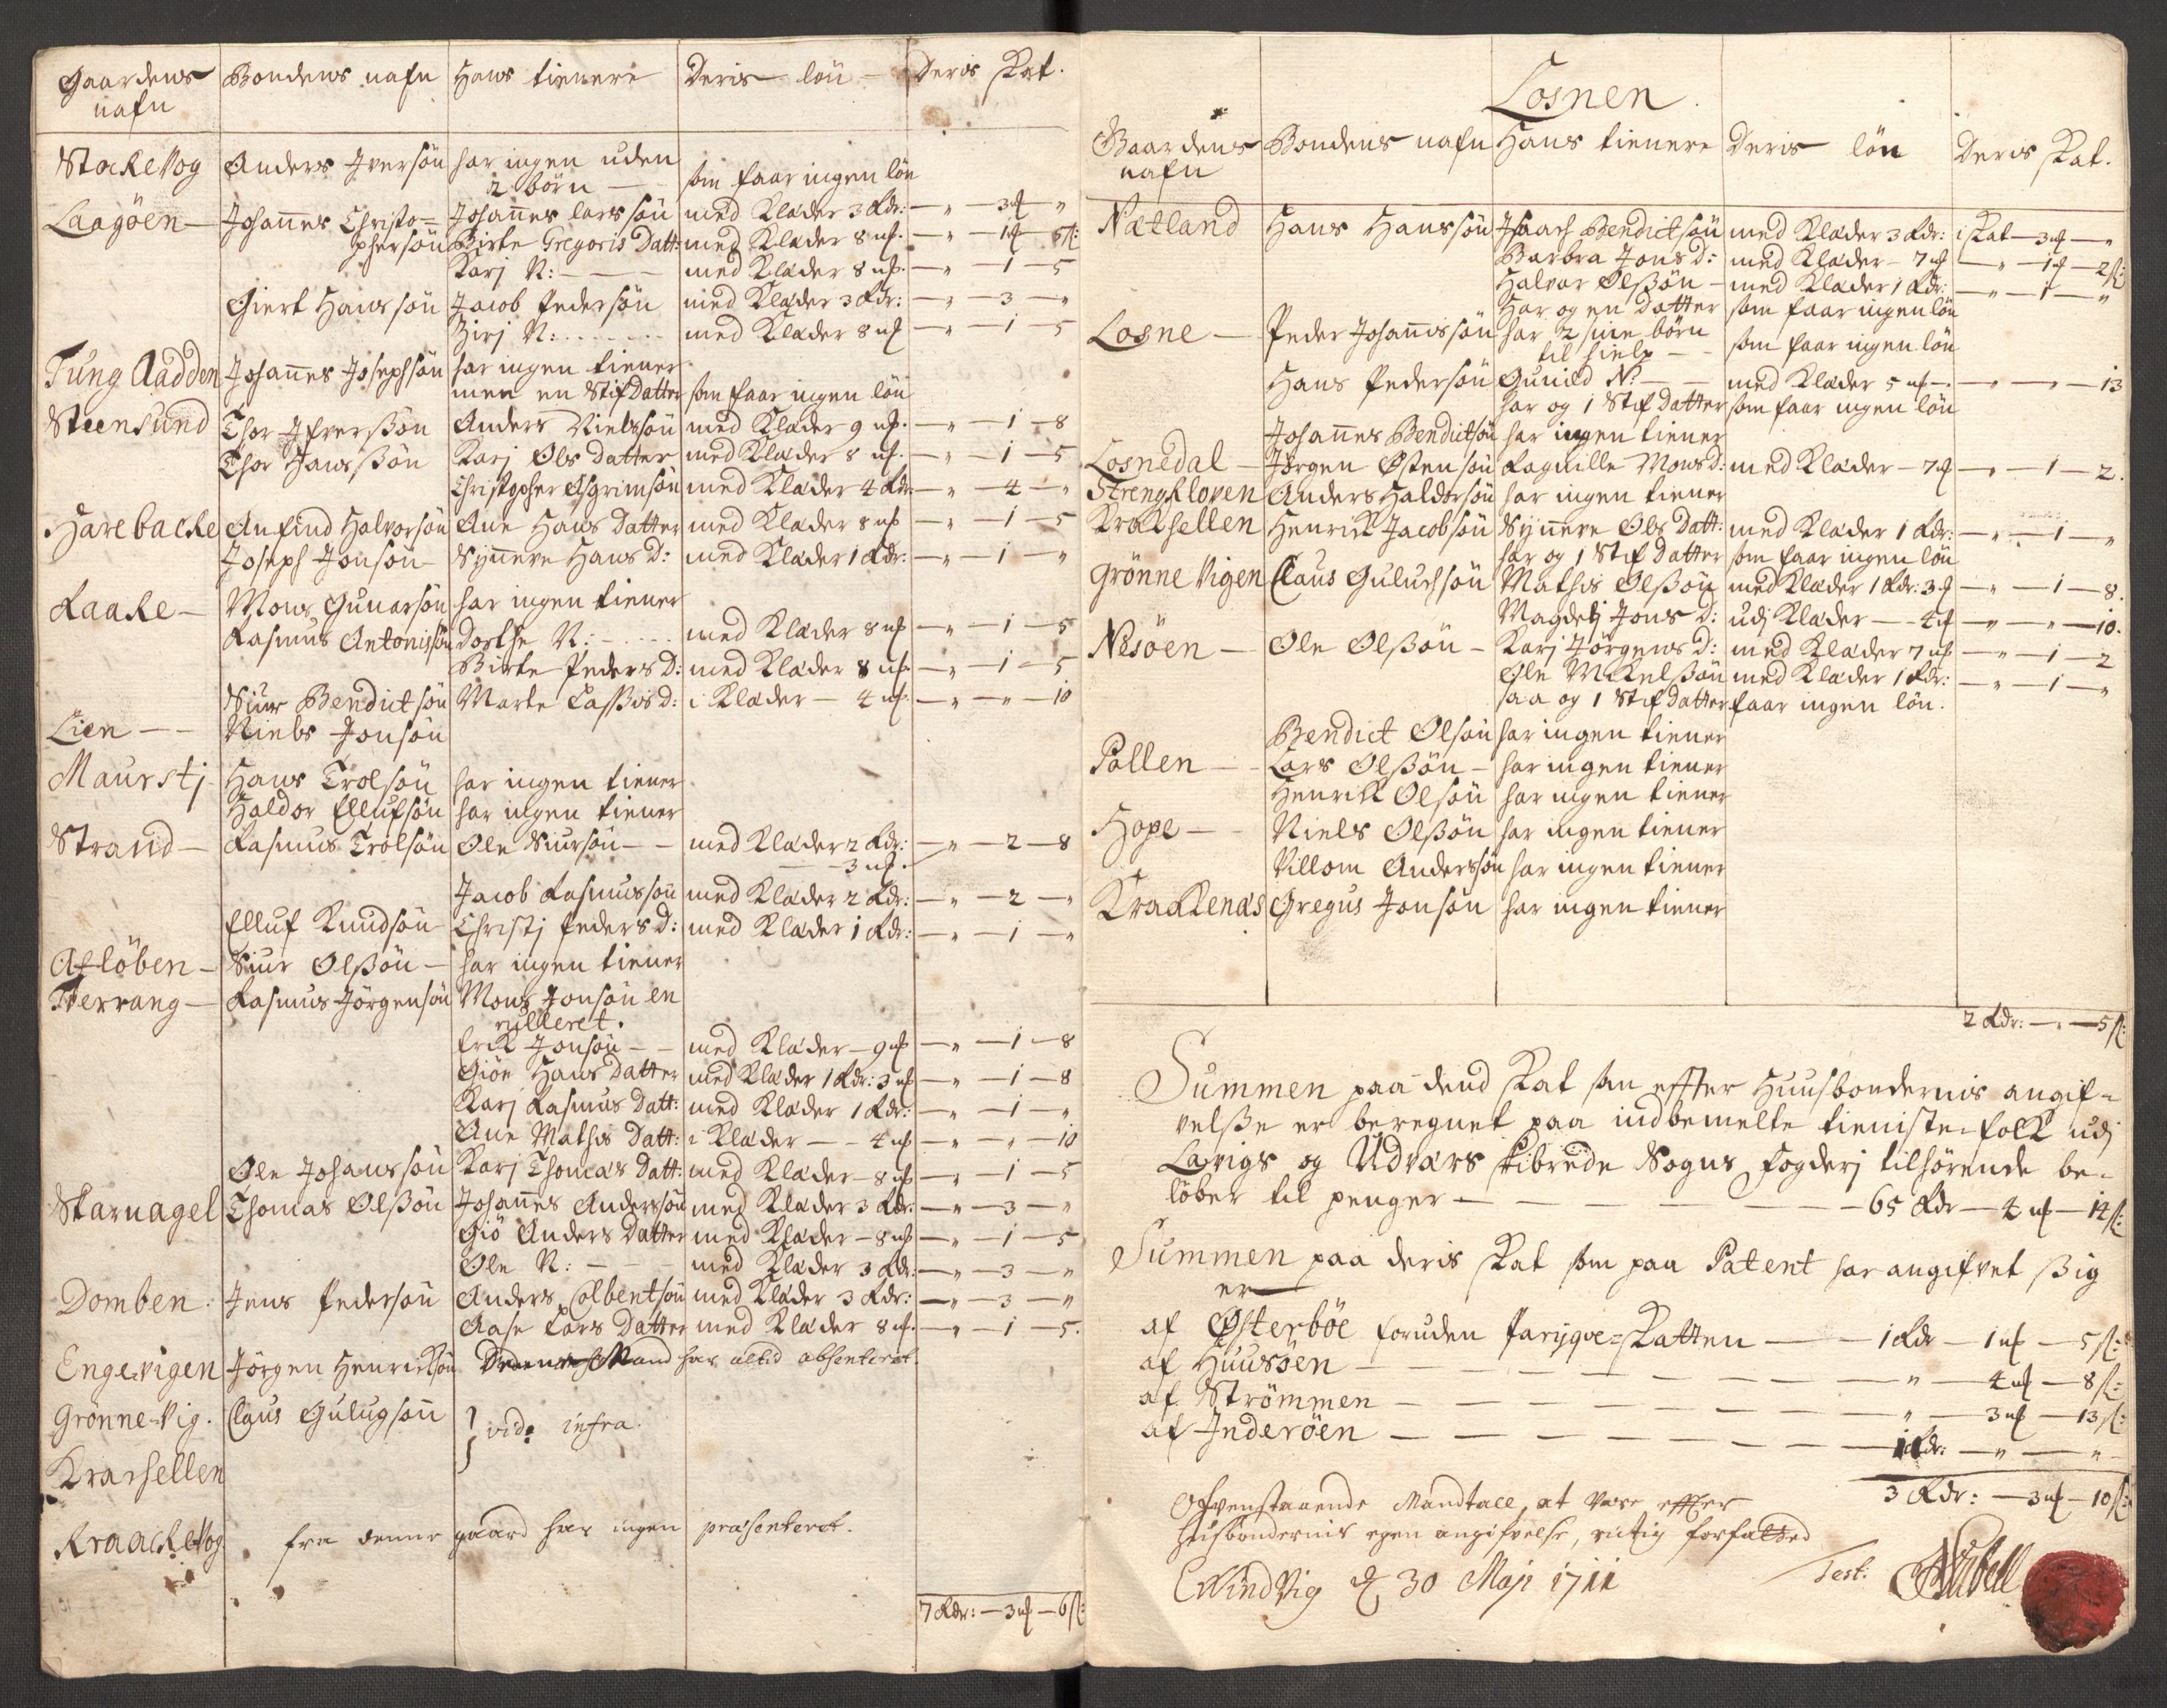 Gaardens nafn | Bondens nafn | Hans tienere | Deris lön | Deris Skat.
StockeVog | Anders Iversön | har ingen uden 2 börn — | som faar ingen lön
Laagöen — | Johannes Christo=phersön | Johannes larssön | med Klæder 3 Rdr: | — „ — 3 ₰ — „
Birte Gregoris Datt: | med Klæder 8 ₰. | — „ — 1 ₰ — 5 s:
Karj N: — — — | med Klæder 8 ₰. | — „ — 1 — 5
Giert Hanssön | Jacob Pedersön | med Klæder 3 Rdr: | — „ — 3 — „
Zirj N: . . . . . . | med Klæder 8 ₰ | — „ — 1 — 5
Tungeladden | Johannes Josephsön | har ingen tiener
men en StifDatter | som faar ingen lön
Steensund | Thor Iferssön | Anders Nielssön | med Klæder 9 ₰. | — „ — 1 — 8
Thor Hanssön | Karj Ols Datter | med Klæder 8 ₰. | — „ — 1 — 5
Christopher Asgrimsön | med Klæder 4 Rdr | — „ — 4 — „
Harebacke | Anfind Halvorsön | Ane Hans Datter | med Klæder 8 ₰ | — „ — 1 — 5
Joseph Jonsön | Synneve Hans D: | med Klæder 1 Rdr: | — „ — 1 — „
Raake — | Mons Gunarsön | har ingen tiener
Rasmus Antonissön | Dorthe N: — . . . . | med Klæder 8 ₰ | — „ — 1 — 5
Birte Peders D: | med Klæder 8 ₰ | — „ — 1 — 5
Siur Bendictsön | Marte Lasses D: | i Klæder — 4 ₰. | — „ — „ — 10
Lien — — | Niels Jonsön
Maurstj | Hans Trolsön | har ingen tiener
Haldor Ellufsön | har ingen tiener
Strand — | Rasmus Trolsön | Ole Siursön — — | med Klæder 2 Rdr: — 3 ₰. | — „ — 2 — 8
Jacob Rasmussön | med Klæder 2 Rdr: | — „ — 2 — „
Elluf Knudsön | Christj Peders D: | med Klæder 1 Rdr: | — „ — 1 — „
Aflöben — | Siur Olssön — | har ingen tiener
Tverrang — | Rasmus Jörgensön | Mons Jonsön en rulleret.
Erick Jonsön — — | med Klæder — 9 ₰ | — „ — 1 — 8
Giön Hans Datter | med Klæder 1 Rdr: 3 ₰ | — „ — 1 — 8
Karj Rasmus Datt: | med Klæder 1 Rdr: | — „ — 1 — „
Ane Mathis Datt: | i Klæder — — 4 ₰ | — „ — „ — 10
Ole Johanssön | Karj Thomas Datt: | med Klæder — 8 ₰ | — „ — 1 — 5
Skarnagel | Thomas Olssön | Johannes Anderssön | med Klæder 3 Rdr: | — „ — 3 — „
Giö Anders Datter | med Klæder — 8 ₰ | — „ — 1 — 5
Ole N: — — — | med Klæder 3 Rdr: | — „ — 3 — „
Domben. | Jens Pedersön | Anders Colbentsön | med Klæder 3 Rdr: | — „ — 3 — „
Aase Lars Datter | med Klæder 8 ₰. | — „ — 1 — 5.
Engevigen | Jörgen Henricksön | Mand har altid absenteret.
Grönne-Vig. | Claus Gulugsön | } vide infra.
Kracsellen
KraackeVog | fra denne gaard har ingen præsenteret.
7 Rdr: — 3 ₰ — 6 s:
Losnen.
Gaardens nafn | Bondens nafn | Hans tienere | Deris lön | Deris Skat.
Nætland | Hans Hanssön | Isaach Bendictsön | med Klæder 3 Rdr: | i Skat — 3 ₰ — „
Barbra Jons D: | med Klæder — 7 ₰ | — „ — 1 ₰ — 2 s:
Halvor Olssön — | med Klæder 1 Rdr: | — „ — 1 — „
Har og en Datter | som faar ingen lön
Losne — | Peder Johannissön | har 2 sine börn til hielp — — | som faar ingen lön
Hans Pedersön | Gunild N: — — | med Klæder 5 ₰ —. | — „ — „ — 13
har og 1 Stif Datter | som faar ingen lön
Johannes Bendictsön | har ingen tiener
Losnedal — | Jörgen Östensön | Ragnille Mons D: | med Klæder — 7 ₰ | — „ — 1 — 2.
Strengkloven | Anders Haldorsön | har ingen tiener
Kraksellen | Henrick Jacobsön | Synneve Ols Datt: | med Klæder 1 Rdr: | — „ — 1 — „
har og 1 Stif Datter | som faar ingen lön
Grönne Vigen | Claus Guluchsön | Mathis Olssön | med Klæder 1 Rdr: 3 ₰ | — „ — 1 — 8.
Magdelj Jons D: | udj Klæder — — 4 ₰ | — „ — „ — 10.
Nesöen — | Ole Olssön — | Karj Jörgens D: | med Klæder 7 ₰ | — „ — 1 — 2
Ole Mickelssön | med Klæder 1 Rdr: | — „ — 1 — „
saa og 1 Stif Datter | faar ingen lön.
Bendict Olsön | har ingen tiener
Pollen — — | Lars Olssön — | har ingen tiener
Henrick Olsön | har ingen tiener
Hope — — | Niels Olssön | har ingen tiener
Villom Anderssön | har ingen tiener
Kraakenæs | Gregus Jonsön | har ingen tiener
2 Rdr: — „ — 5 s:
Summen paa dend Skat som effter Huusbondernis angif=
velsse er beregnet paa indbemelte tieniste-folk udj
Lavigs og Udværs Skibrede Sogns fogderj tilhörende be-
löber til penger — — — — — — 65 Rdr — 4 ₰ — 14 s:
Summen paa deris Skat som paa Patent har angifvet ssig
er
af Österböe foruden Parÿqve=Skatten — — 1 Rdr — 1 ₰ — 5 s:
af Huusöen — — — — — — — „ — 4 ₰ — 8 s:
af Strömmen — — — — — — — „ — 3 ₰ — 13 s:
af Inderöen — — — — — — — 1 Rdr: — „ — „ —
3 Rdr: — 3 ₰ — 10 s:
Ofvenstaaende Mandtall, at være effter
husbondernis egen angifvelse, rictig forfatted
EVindVig d 30 Maji 1711
Test.